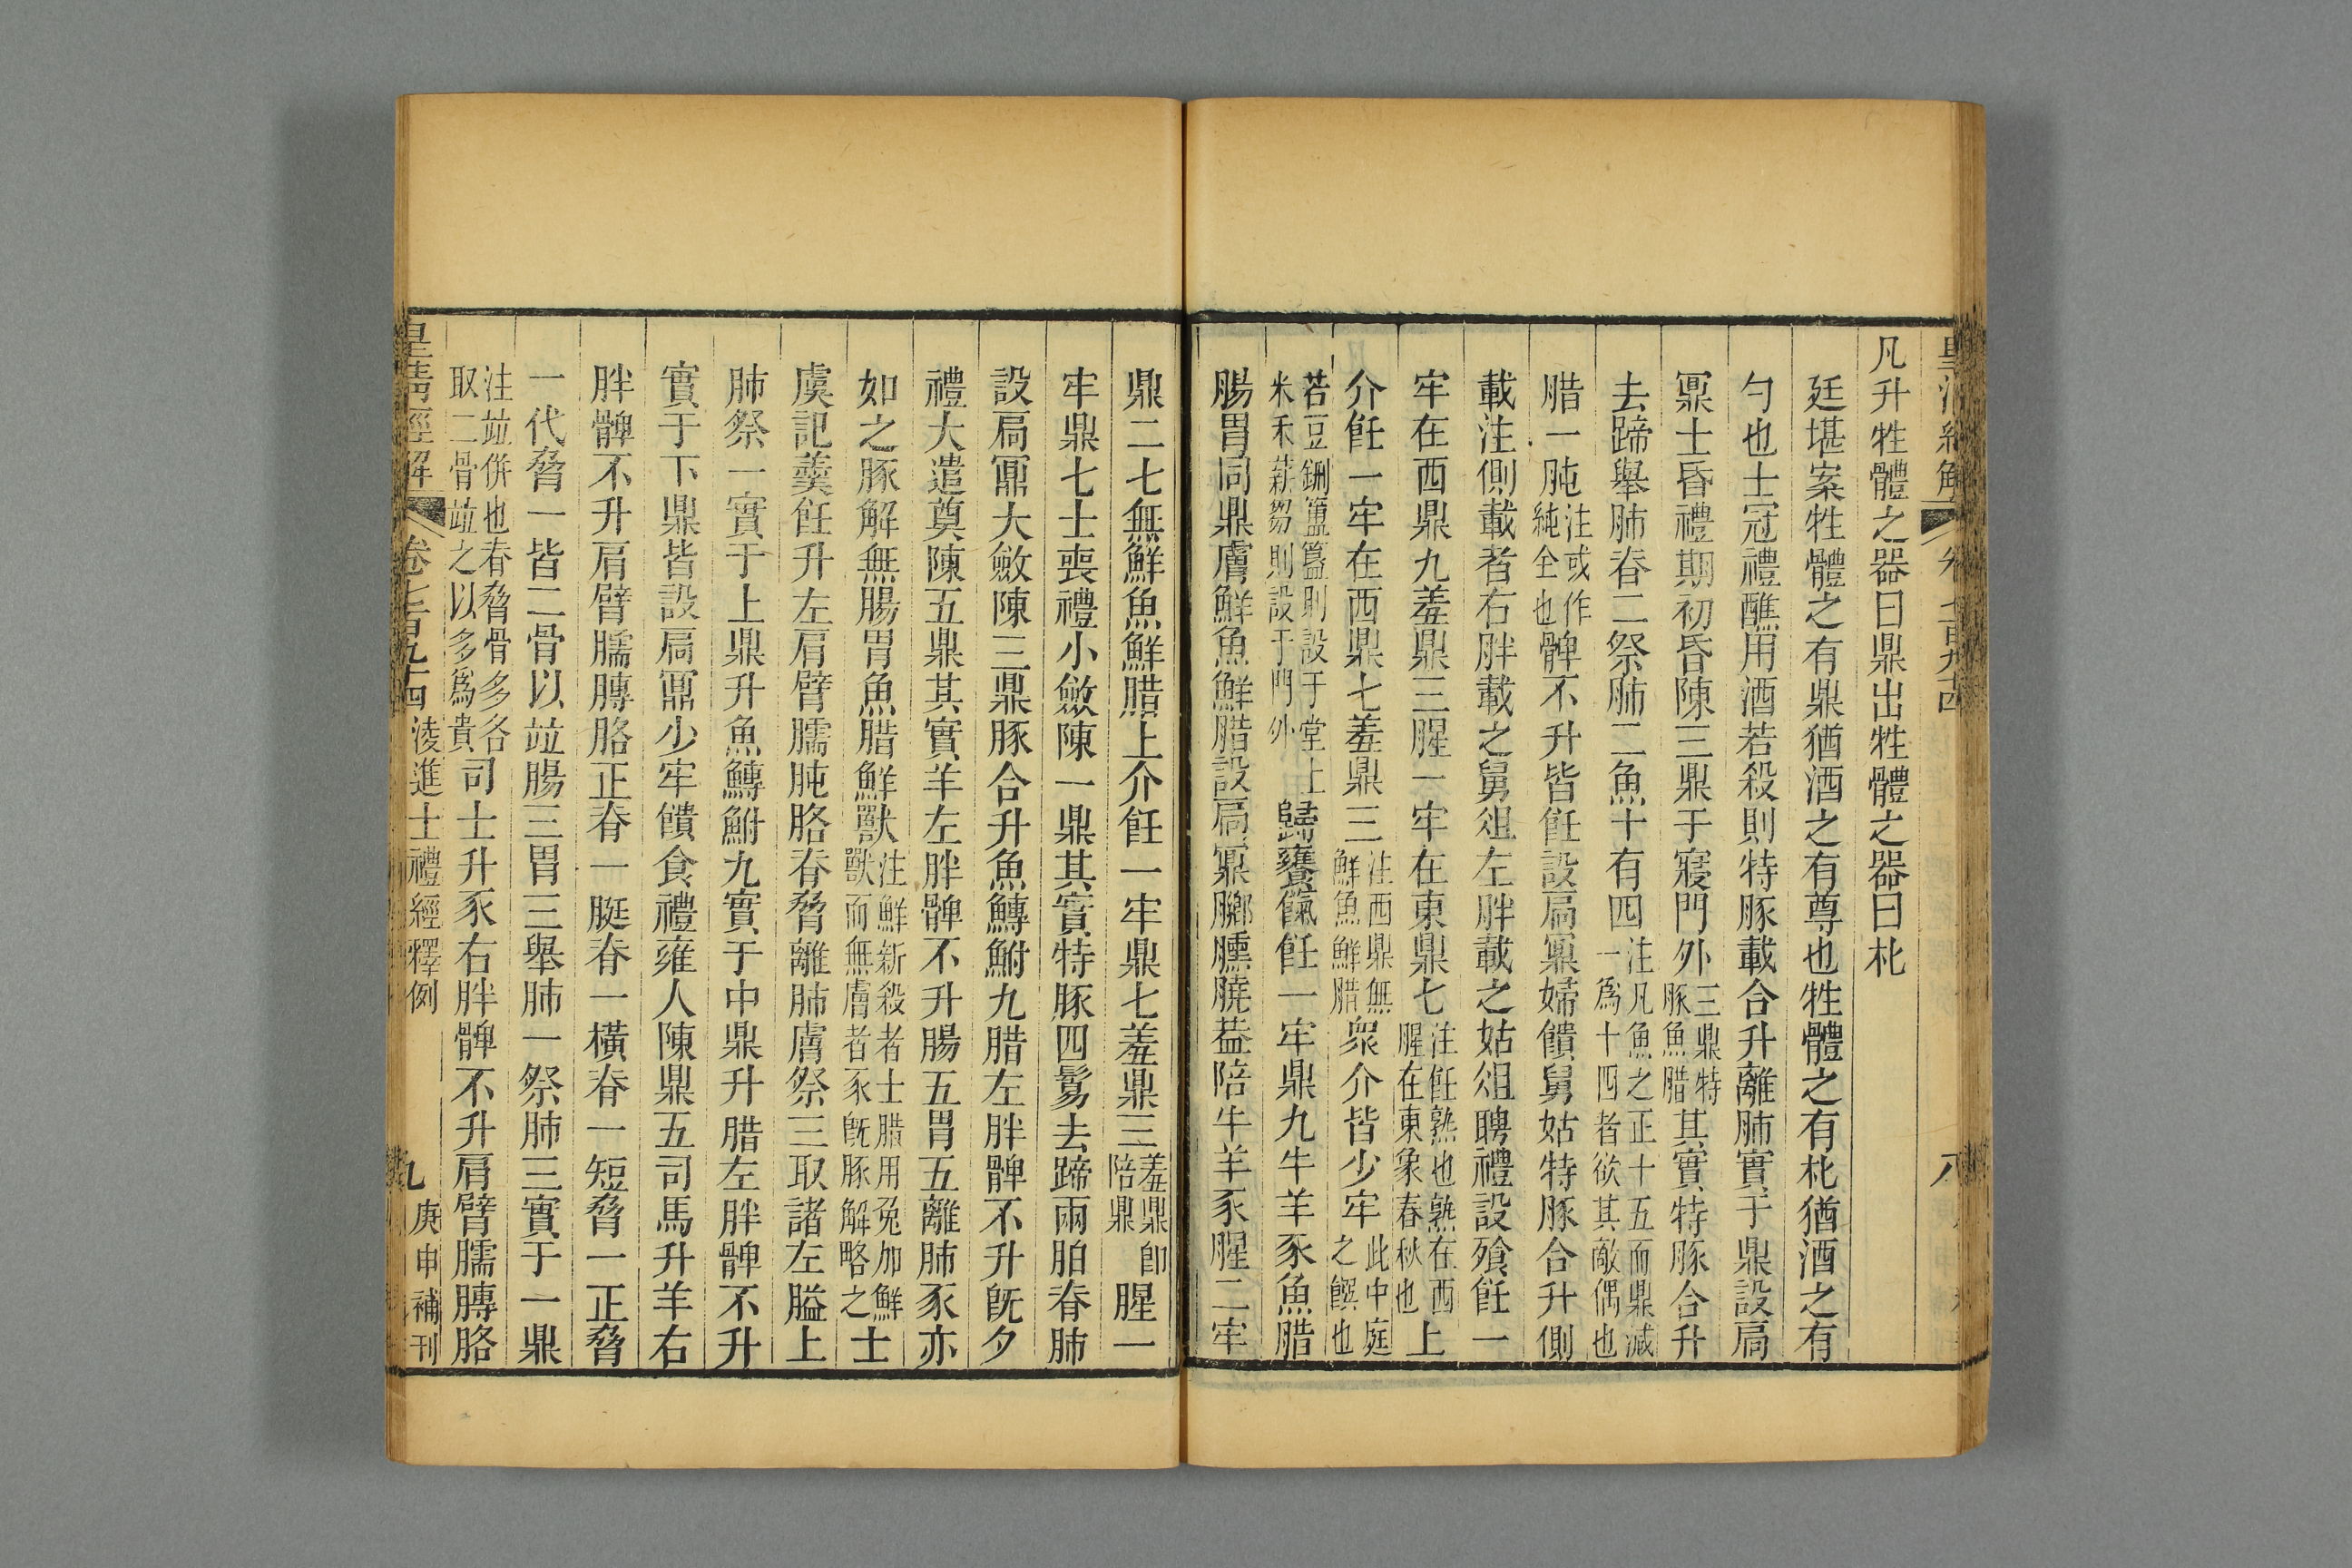 凡升牲體之器曰鼎出牲體之器曰朼
廷堪案牲體之有鼎猶酒之有尊也牲體之有朼猶酒之有
勺也士冠禮醮用酒若殺則特豚載合升離肺實于鼎設扃
鼏士昏禮期初昏陳三鼎于寢門外三鼎特豚魚腊其實特豚合升
去蹄舉肺脊二祭肺二魚十有四注凡魚之正十五而鼎減一爲十四者欲其敵偶也
腊一肫注肫或作純純全也髀不升皆飪設扃鼏婦饋舅姑特豚合升側
載注側載者右胖載之舅俎左胖載之姑俎聘禮設飱飪一
牢在西鼎九羞鼎三腥一牢在東鼎七注飪熟也熟在西腥在東象春秋也上
介飪一牢在西鼎七羞鼎三注西鼎無鮮魚鮮腊衆介皆少牢此中庭之饌也
若豆鉶簠簋則設于堂上米禾薪芻則設于門外歸饔餼飪一牢鼎九牛羊豕魚腊
腸胃同鼎膚鮮魚鮮腊設扃鼏膷臐膮葢陪牛羊豕腥二牢
鼎二七無鮮魚鮮腊上介飪一牢鼎七羞鼎三羞鼎卽陪鼎腥一
牢鼎七士喪禮小斂陳一鼎其實特豚四鬄去蹄兩胉脊肺
設扃鼏大斂陳三鼎豚合升魚鱄鮒九腊左胖髀不升旣夕
禮大遣奠陳五鼎其實羊左胖髀不升腸五胃五離肺豕亦
如之豚解無腸胃魚腊鮮獸注鮮新殺者士腊用兔加鮮獸而無膚者豕旣豚解略之士
虞記羹飪升左肩臂臑肫胳脊脅離肺膚祭三取諸左膉上
肺祭一實于上鼎升魚鱄鮒九實于中鼎升腊左胖髀不升
實于下鼎皆設扃鼏少牢饋食禮雍人陳鼎五司馬升羊右
胖髀不升肩臂臑膞胳正脊一脡脊一橫脊一短脅一正脅
一代脅一皆二骨以竝腸三胃三舉肺一祭肺三實于一鼎
注竝併也脊脅骨多各取二骨竝之以多爲貴司士升豕右胖髀不升肩臂臑膞胳
皇清經解 卷七百九十四 淩進士禮經釋例 九 庚申補刊